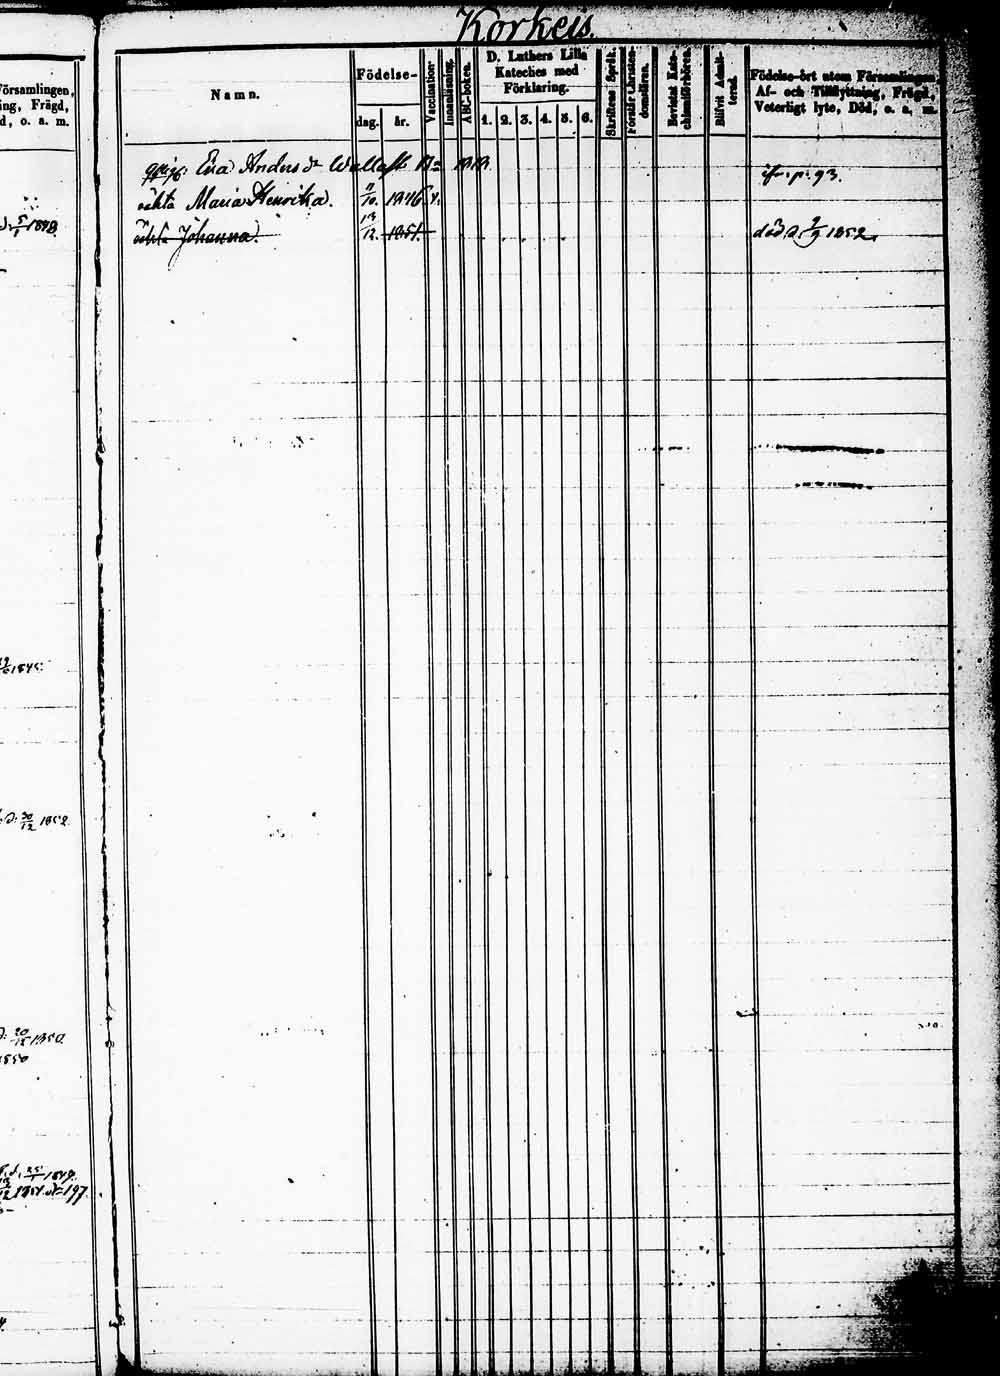 Korkeis.
Församlingen,
ing, Frägd,
d, o. a. m.
Namn.
Födelse-
dag.
år.
Vaccination.
Innanläsning.
ABC-boken.
D. Luthers Lilla
Kateches med
Förklaring.
1. 2. 3. 4. 5. 6.
Skriftens Språk.
Förstår Christen-
domsläran.
Bevistat Kate-
chismiförhören.
Blifvit Admit-
terad.
Födelse-ort utom Församlingen,
Af- och Tillflyttning, Frägd,
Veterligt lyte, Död, o. a. m.
Eva Andersdr p. 93.
äkta Maria Henrika. 11/10. 1846. v.
äkta Johanna. 13/12. 1851. död d. 2/9 1852.
d. 5/1 1848.
1845.
d. 30/12 1852.
d. 20/12 1850.
1850
d. 25/1 1849.
197.